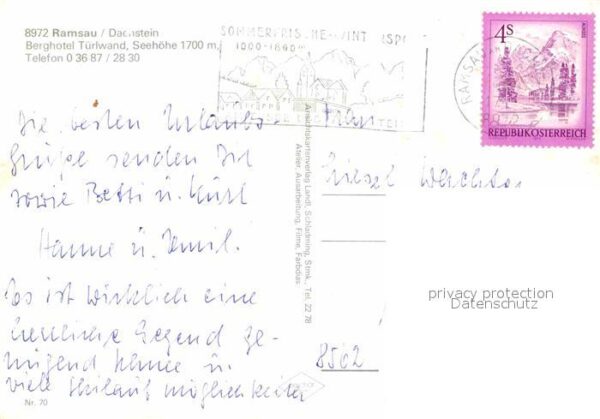 8972 Ramsau / Dachstein
Berghotel Türlwand, Seehöhe 1700 m,
Telefon 0 36 87 / 28 30
SOMMERFRISCHE
1000-1800 m
RAMSAU
4s
REPUBLIK ÖSTERREICH
Die besten Urlaubs-
grüße senden Dir
sowie Betti u. Kurt
Hanne u. Emil.
Es ist wirklich eine
herrliche Gegend ge-
nügend Schnee u.
viele Skilauf möglichkeiten
Frau
Liesel Wachter
8562
Ansichtskartenverlag Landl, Schladming, Stmk., Tel. 22 78
Atelier, Ausarbeitung, Filme, Farbdias
privacy protection
Datenschutz
Nr. 70